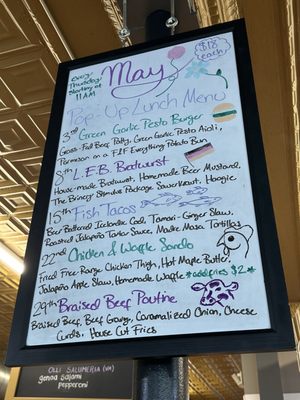 Every
Thursday
Starting at
11AM
May
$18
each
Pop-Up Lunch Menu
3rd Green Garlic Pesto Burger
Grass-Fed Beef Patty, Green Garlic Pesto Aioli,
Parmesan on a Everything Potato Bun
8th L.E.B. Bratwurst
House-made Bratwurst, Homemade Beer Mustard,
The Brinery Stimulus Package Sauerkraut, Hoagie
15th Fish Tacos
Beer Battered Icelandic Cod, Tamari-Ginger Slaw,
Roasted Jalapeño Tartar Sauce, Masa Tortillas
22nd Chicken & Waffle Sando
Fried Free Range Chicken Thigh, Hot Maple Butter,
Jalapeño Apple Slaw, Homemade Waffle *add fries $2*
29th Braised Beef Poutine
Braised Beef, Beef Gravy, Caramalized Onion, Cheese
Curds, House Cut Fries
OLLI SALUMERIA (VA)
genoa salami
pepperoni